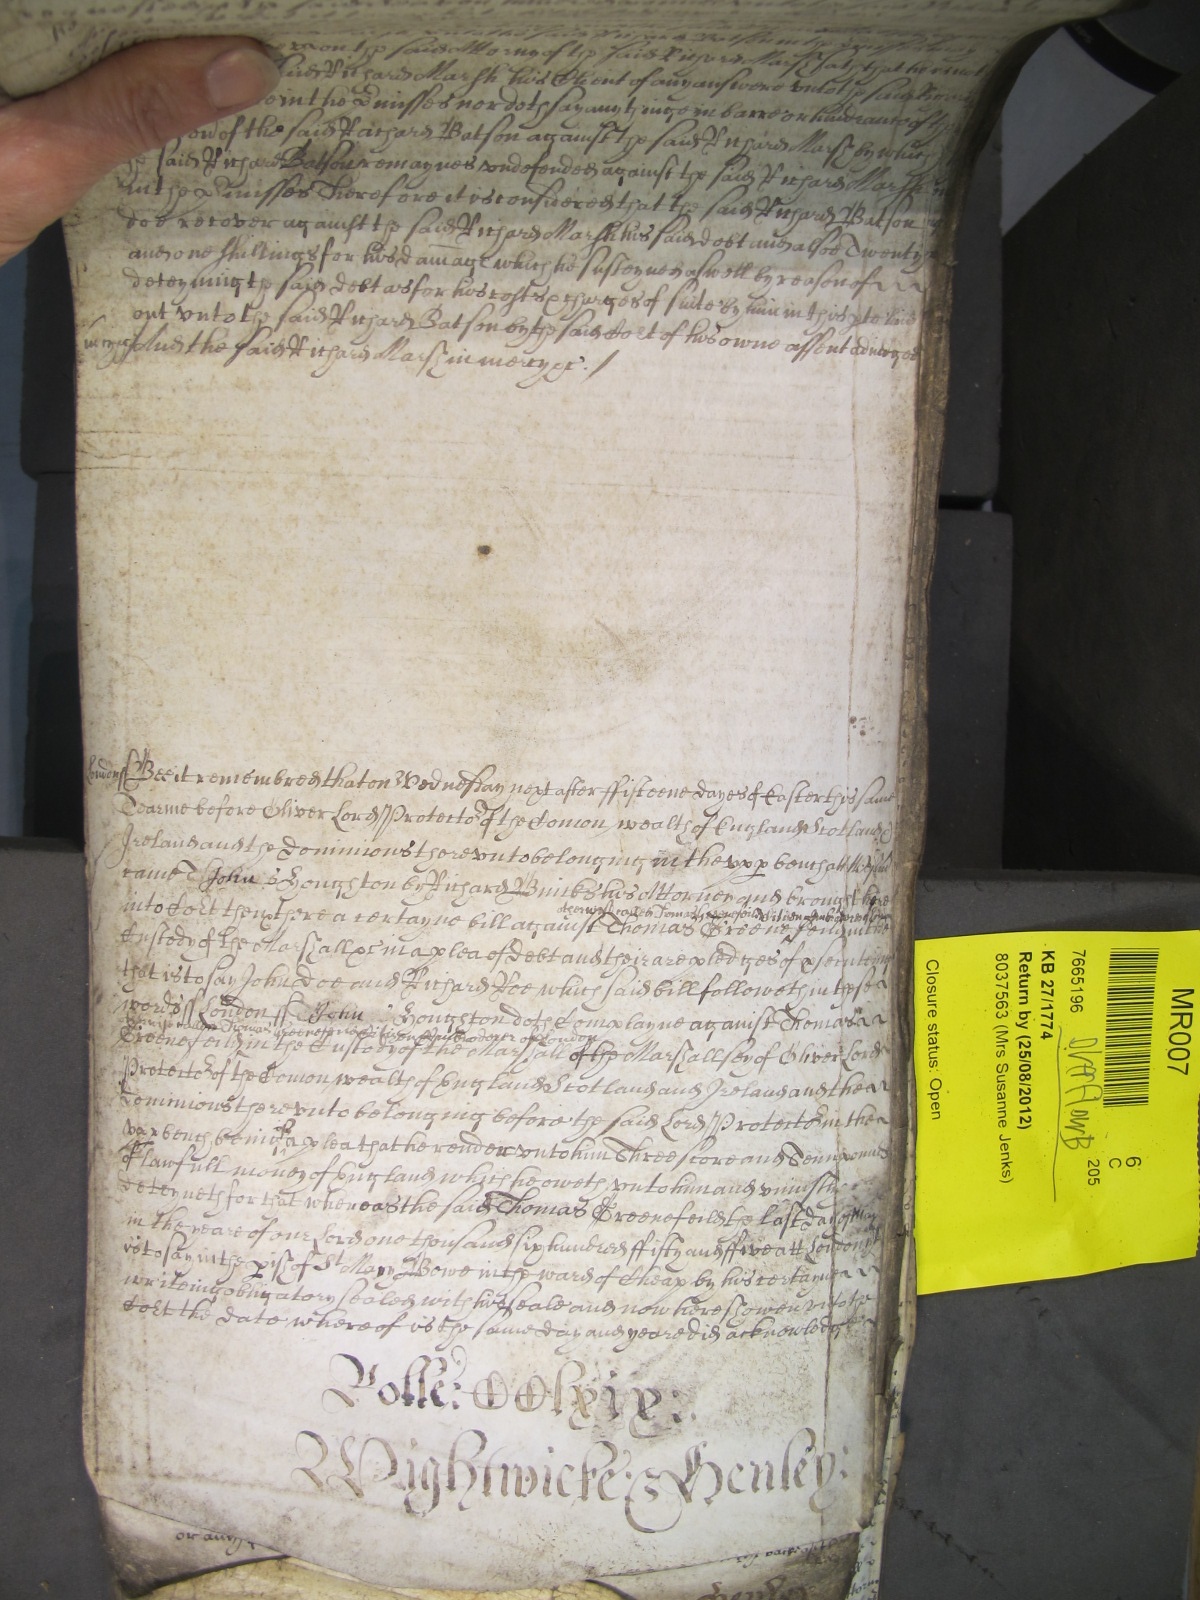 upon the said Attorney of the said Richard Marsh saith that he is not
said Richard Marsh his Client of any answere unto the said Richard
in the p̱misses nor doth say any thinge in barre or hinderance of the
of the said Richard Batson against the said Richard Marsh by which
the said Richard Batson remaynes undefended against the said Richard Marsh
in the p̱misses Therefore it is considered that the said Richard Batson
doe recover against the said Richard Marsh his said debt and alsoe Twenty
and one shillings for his damage which he susteyned aswell by reason of
deteyning the said debt as for his costs & charges of suite by him in this p̱te laid
out unto the said Richard Batson by the said Cort of his owne assent adiudged
mercy And the said Richard Marsh in mercy &c: /
London ss Bee it remembred that on Wednesday next after ffifteene dayes of Easter this same
Tearme before Oliver Lord Protector of the Comon wealth of England Scotland &
Ireland and the Dominions thereunto belonging in the upp̱ bench att Westmr
came John Houghton by Richard his Attorney and brought here
otherwise called Thomas Greenefeild Citizen and of London
into Cort then & there a certayne bill against Thomas Greenefeild in the
Custody of the Marshall &c in a plea of Debt and their are pledges of p̱secuting
that is to say John Doe and Richard Roe which said bill followeth in these
words ss London ss John Houghton doth Complayne against Thomas
otherwise called Thomas Greenefeild Citizen and of London
Greenefeild in the Custody of the Marshall of the Marshallsey of Oliver Lord
Protector of the Comon wealth of England Scotland and Ireland and the
Dominions thereunto belonging before the said Lord Protector in the
upp̱ bench being of a plea that he render unto him Threescore and Tenn pounds
of lawfull money of England which he oweth unto him and uniustly
deteyneth for that whereas the said Thomas Greenefeild the last day of May
in the yeare of our Lord one thousand six hundred ffifty and ffive att London that
is to say in the p̱ish of St Mary Bowe in the ward of Cheap by his certayne
writeing obligatory sealed with his seale and now here shewen unto the
Cort the date whereof is the same day and yeare did acknowledge
Rolle: CClxix:
Wightwicke: & Henley:
or any
MR007
7665196
6
C
205
KB 27/1774
Return by (25/08/2012)
8037563 (Mrs Susanne Jenks)
Closure status: Open